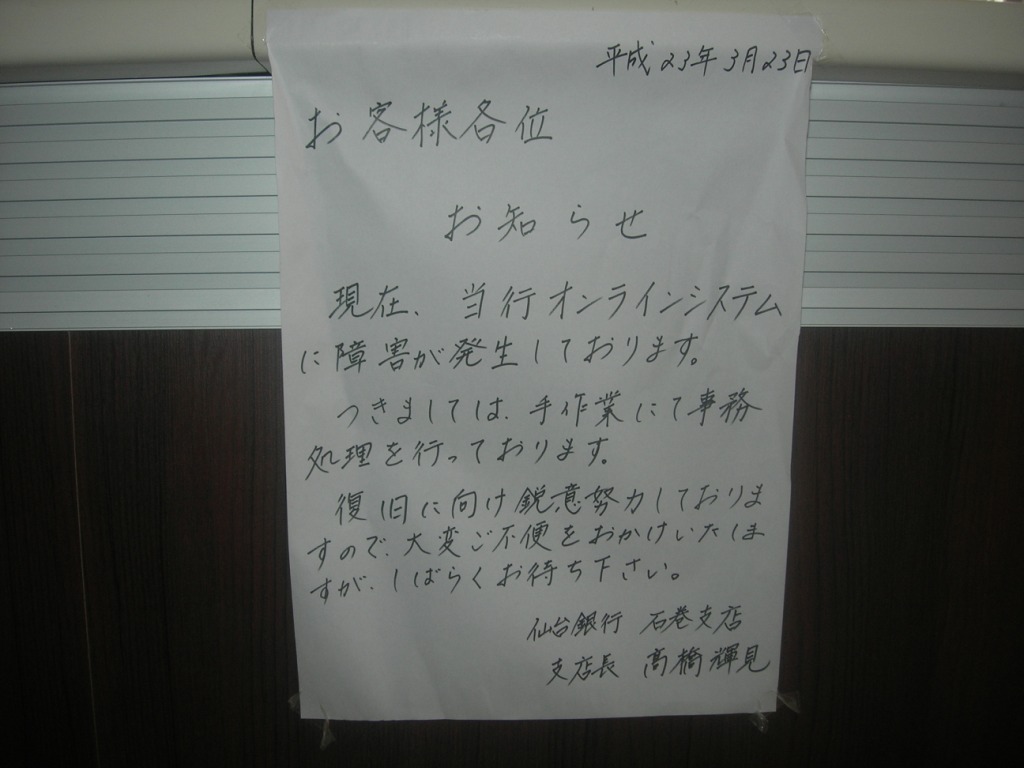 平成23年3月23日
お客様各位
お知らせ
現在、当行オンラインシステム
に障害が発生しております。
つきましては、手作業にて事務
処理を行っております。
復旧に向け鋭意努力しておりま
すので、大変ご不便をおかけいたしま
すが、しばらくお待ち下さい。
仙台銀行 石巻支店
支店長 高橋輝見